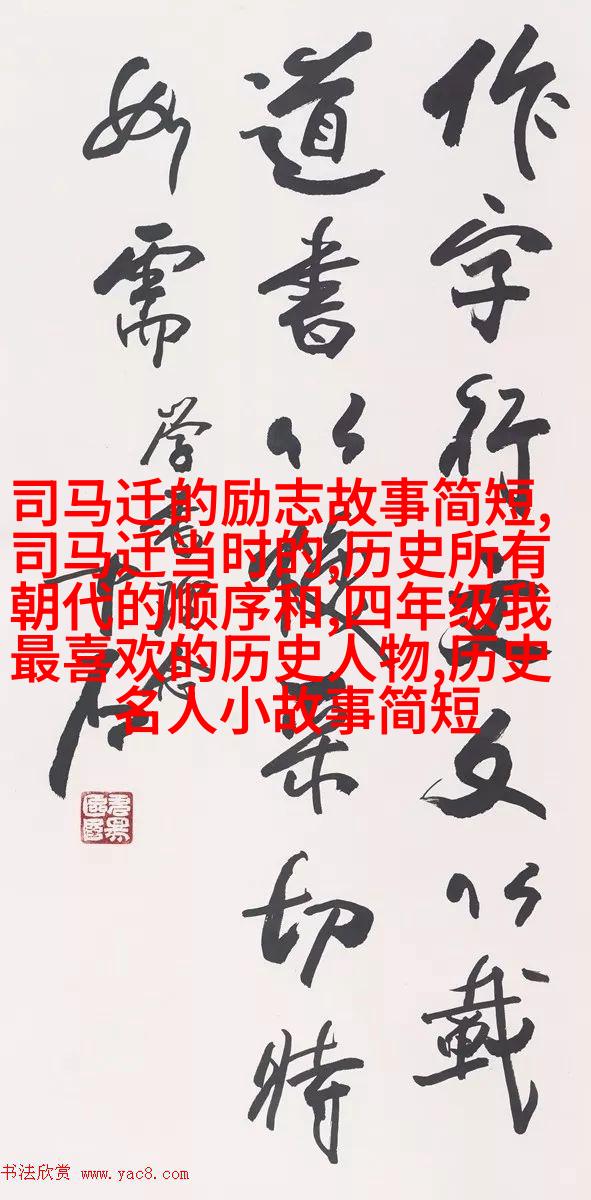 作字行文以載
道書以采切時
如需
司马迁的励志故事简短,
司马迁当时的,历史所有
朝代的顺序和,四年级我
最喜欢的历史人物,历史
名人小故事简短
书法欣赏 www.yac8.com